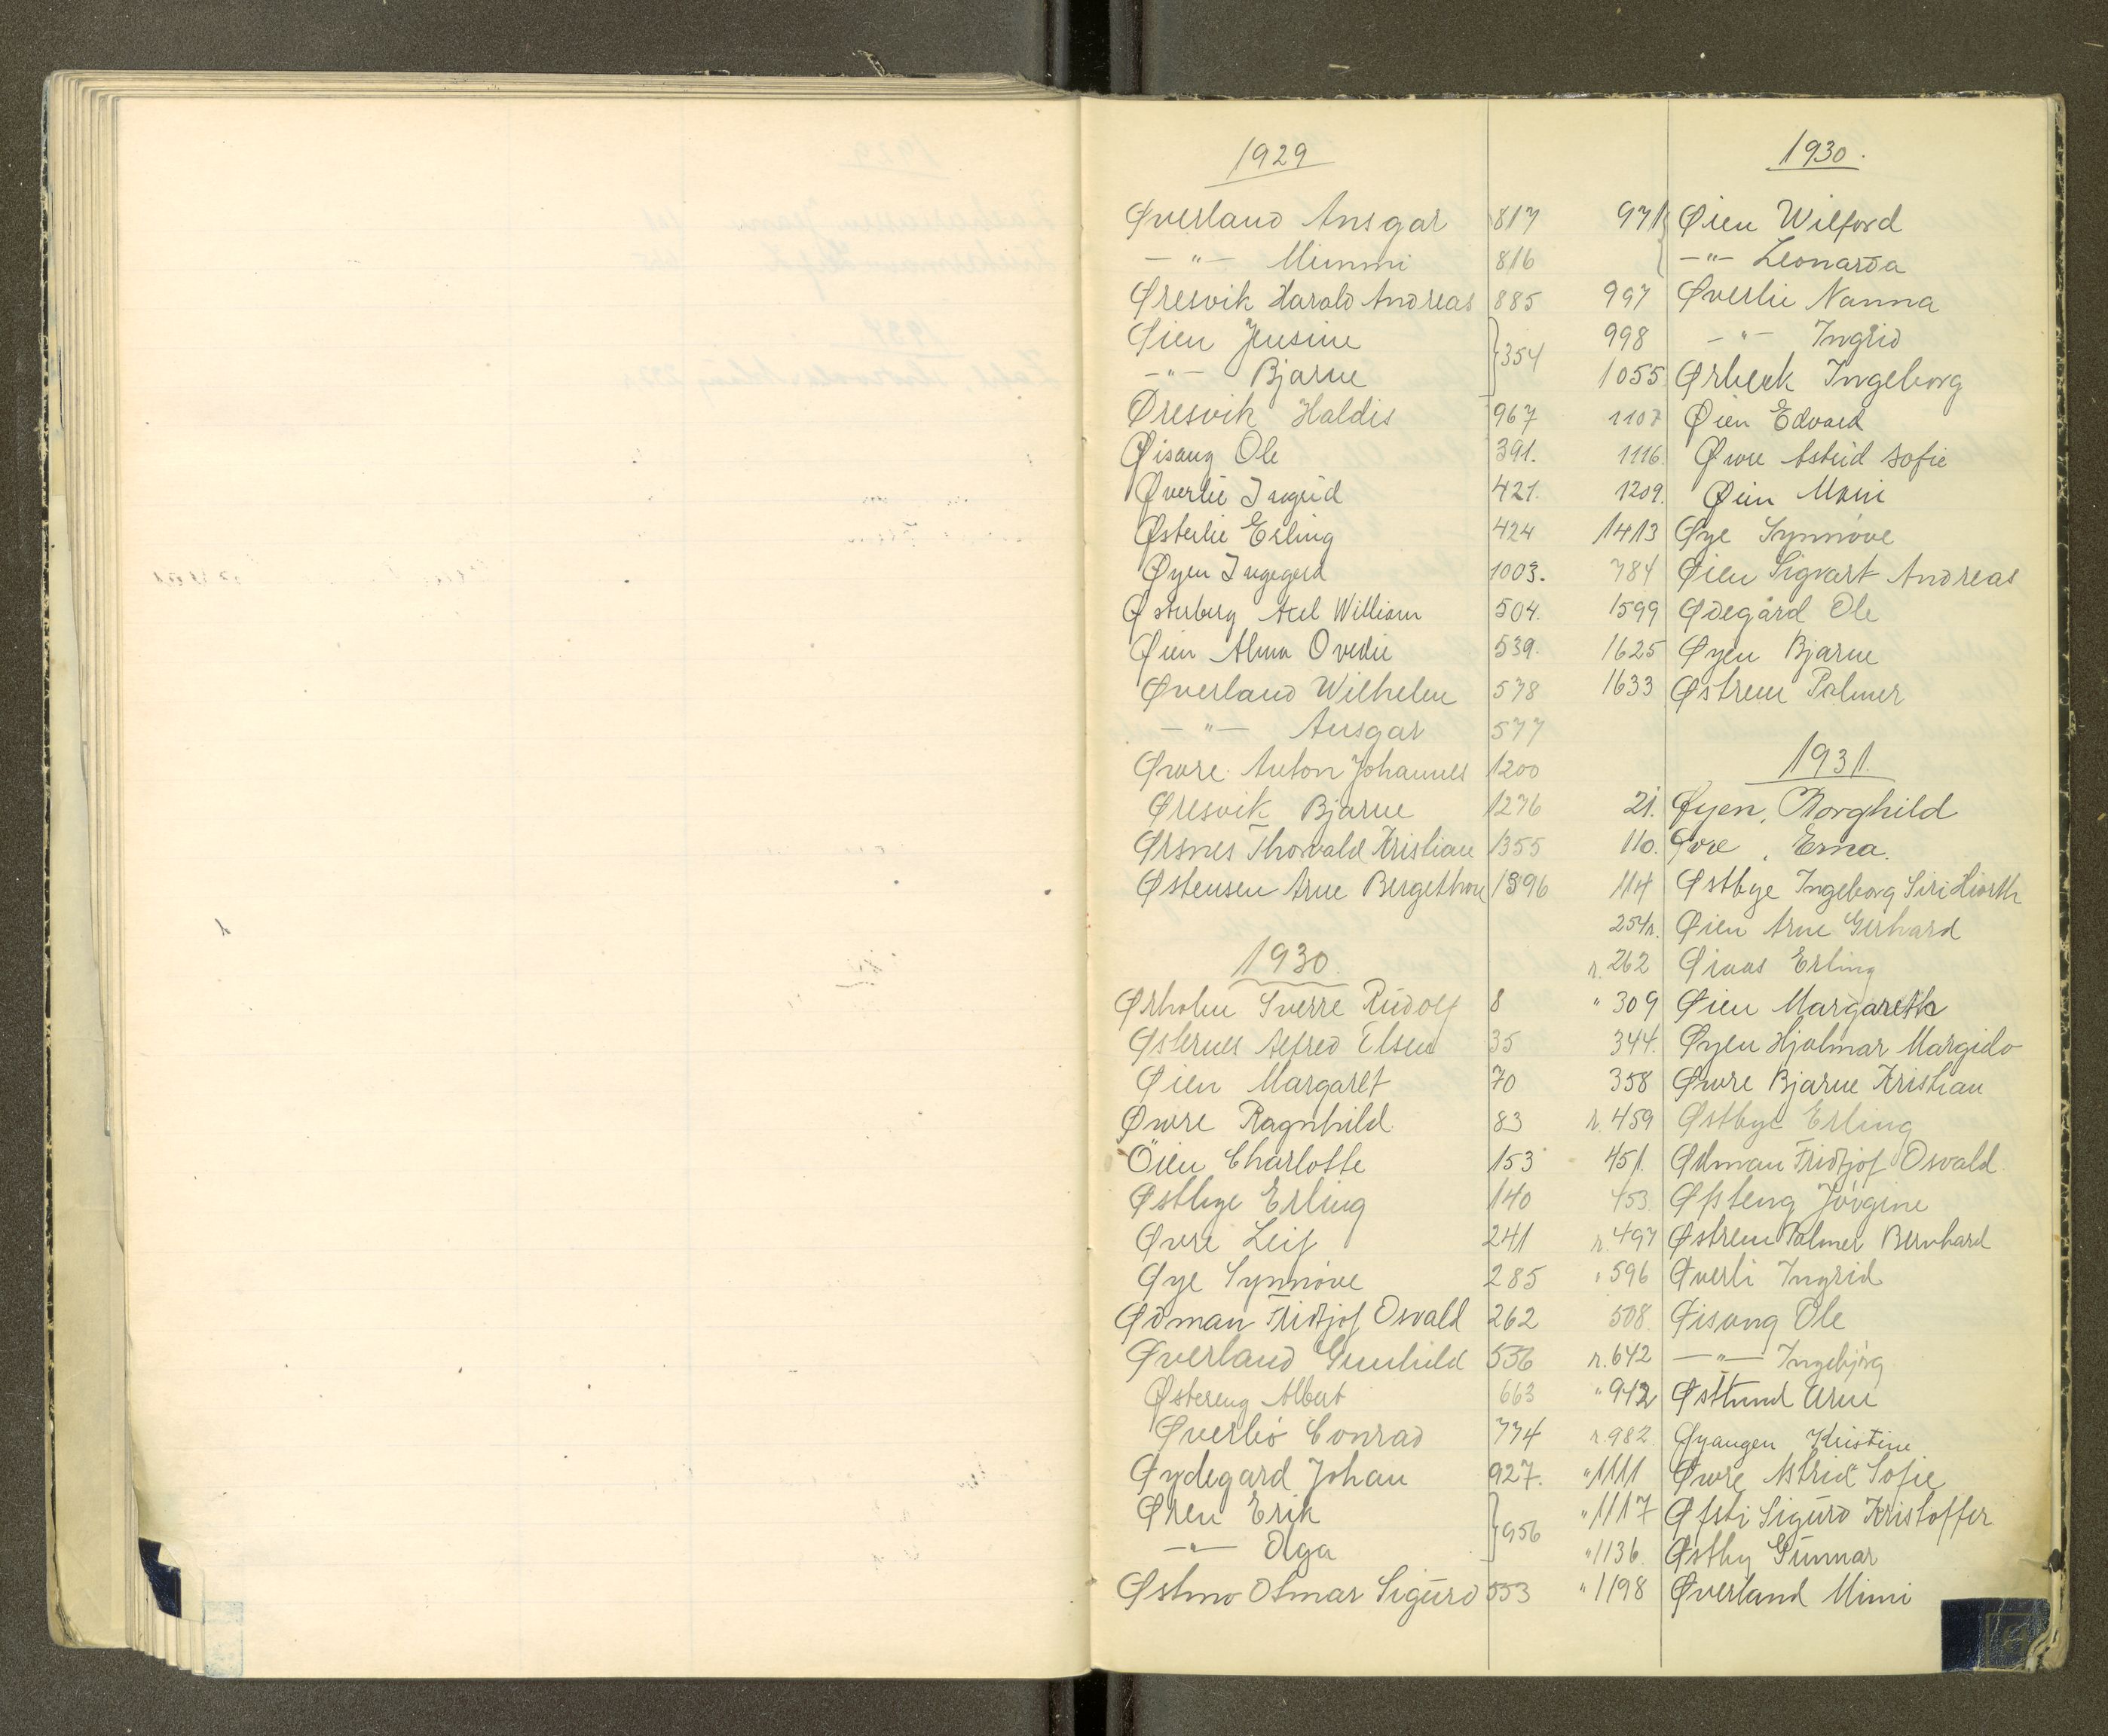 1929
Øverland Ansgar 817
—"— Mimmi 816
Øresvik Harald Andreas 885
Øien Jensine
—"— Bjarne } 354
Øresvik Haldis 967
Øisang Ole 391.
Øverlie Ingrid 421.
Østerlie Erling 424
Øyen Ingegerd 1003.
Østerberg Axel William 504.
Øien Alma Ovedie 539.
Øverland Wilhelm 578
—"— Ansgar 577
Øwre Anton Johannes 1200
Øresvik Bjarne 1276
Ørsnes Thorvald Kristian 1355
Østensen Arne Bergethon 1396
1930.
Ørholm Sverre Rudolf 8
Østernes Alfred Elsen 35
Øien Margaret 70
Øwre Ragnhild 83
Öien Charlotte 153
Østbye Erling 140
Øvre Leif 241
Øye Synnöve 285
Ødman Fridtjof Osvald 262
Øverland Gunhild 536
Østereng Albert 663
Øverbö Conrad 774
Øydegard Johan 927.
Øren Erik
—"— Olga } 956
Østmo Otmar Sigurd 553
1930.
971 { Øien Wilford
—"— Leonarda
997 Øverlie Nanna
998 —"— Ingrid
1055 Ørbeck Ingeborg
1107 Øien Edvard
1116. Øwre Astrid Sofie
1209. Øien Marie
1413 Øye Synnöve
784 Øien Sigvart Andreas
1599 Ødegård Ole
1625 Øyen Bjarne
1633 Østrem Palmer
1931.
21. Øyen, Borghild
110. Øvre, Erna.
114 Østbye Ingeborg Siri Hiorth
254n. Øien Arne Gerhard
n. 262 Øiaas Erling
" 309 Øien Margareth
344. Øyen Hjalmar Margido
358 Øwre Bjarne Kristian
n. 459 Østbye Erling
451. Ødman Fridtjof Osvald
453. Øfsteng Jörgine
n. 497 Østrem Palmer Bernhard
" 596 Øverli Ingrid
508. Øisang Ole
n. 642 —"— Ingebjörg
" 942 Østlund Arne
n. 982. Øyangen Kristine
" 1111 Øwre Astrid Sofie
" 1117 Øfsti Sigurd Kristoffer
" 1136. Østby Gunnar
" 1198 Øverland Mimi